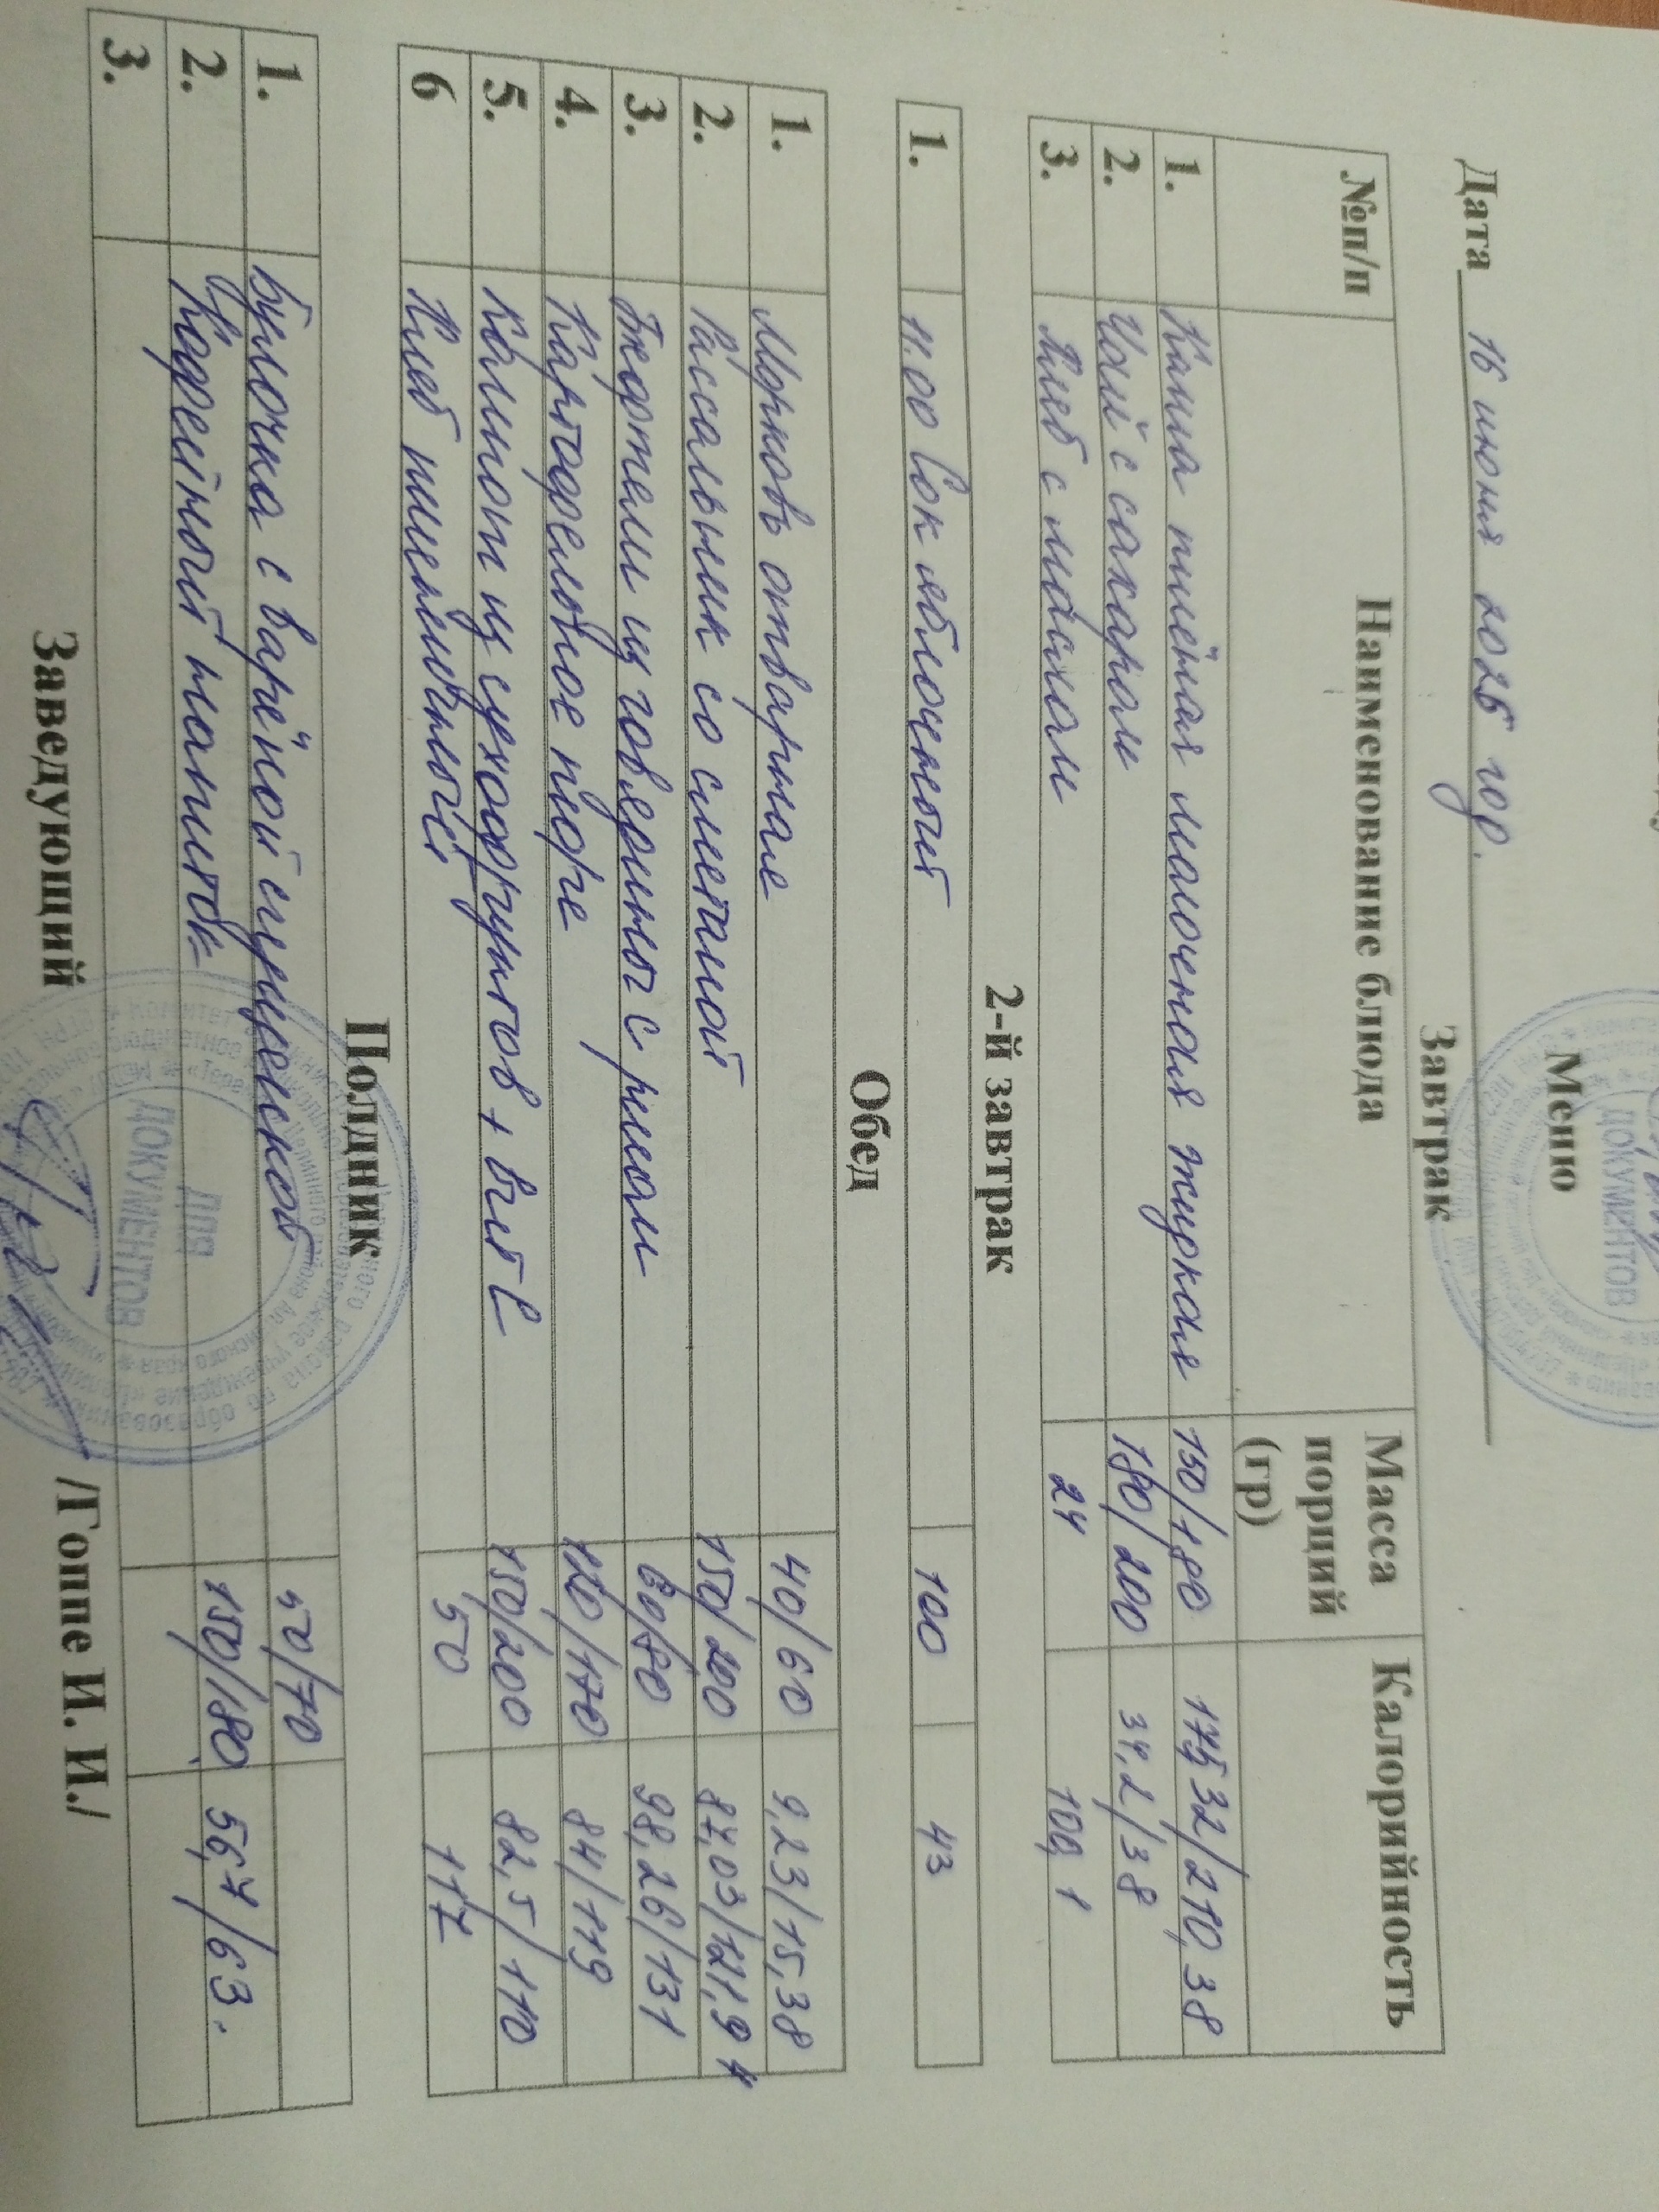 Меню
Дата 16 июня 2025 год.
Завтрак
№п/п Наименование блюда Масса порций (гр) Калорийность
1. Каша пшённая молочная жидкая 150/180 175,32/210,38
2. Чай с сахаром 180/200 34,2/38
3. Хлеб с маслом 24 100,1
2-й завтрак
1. 11.00 Сок яблочный 100 43
Обед
1. Морковь отварная 40/60 9,23/15,38
2. Рассольник со сметаной 150/200 87,03/121,94
3. Бифтели из говядины с рисом 60/80 98,26/131
4. Картофельное пюре 120/170 84/119
5. Компот из сухофруктов + вит С 150/200 82,5/110
6 Хлеб пшеничный 50 117
Полдник
1. Булочка с варёной сгущенкой 50/70
2. Кофейный напиток 150/180 56,7/63.
3.
Заведующий /Гоппе И. И./
ДЛЯ ДОКУМЕНТОВ